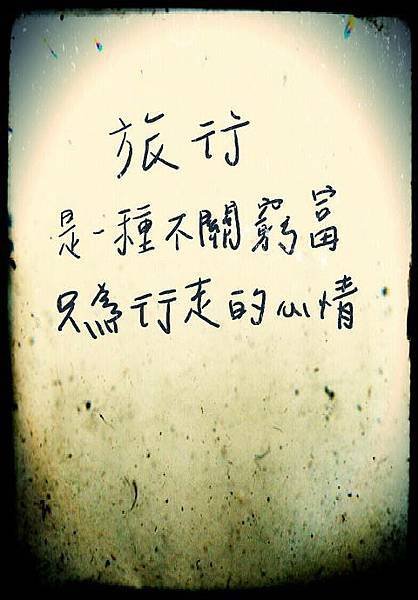 旅行
是一種不關窮富
只為行走的心情